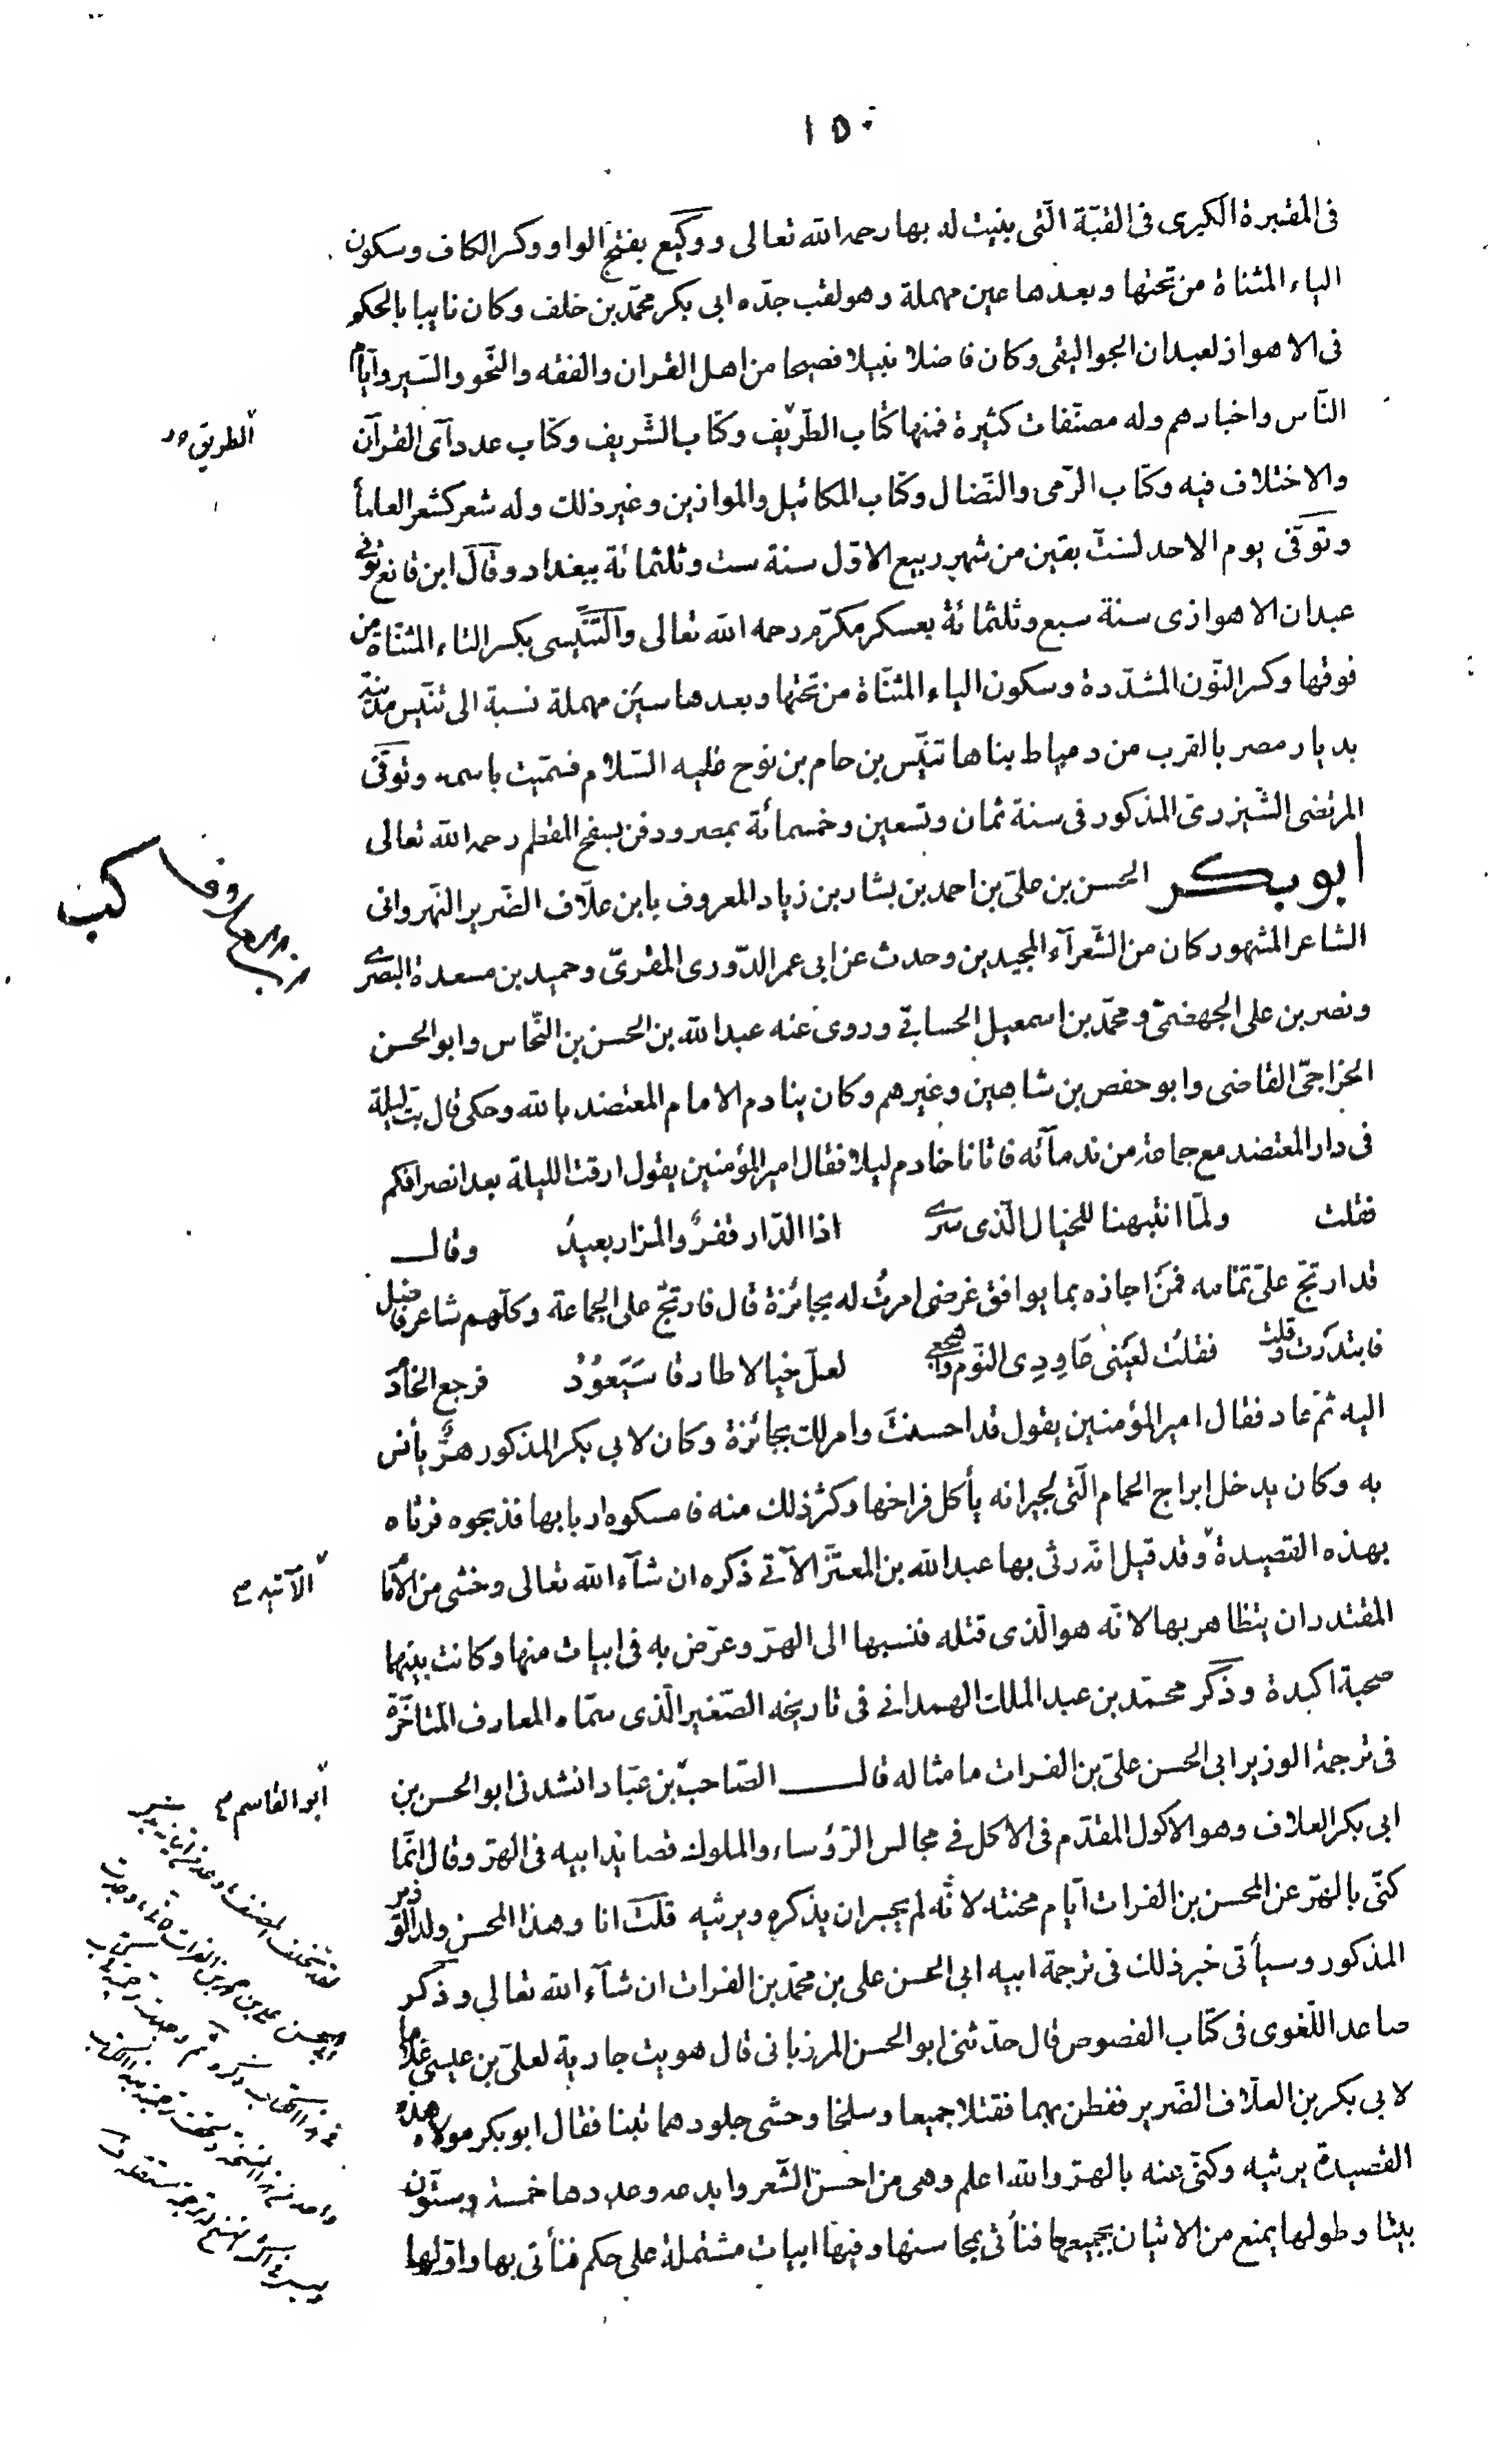 ١٥٠
فى المقبرة الكبرى فى القبّة الّتى بنيت له بها رحمه الله تعالى ووكيع بفتح الواو وكسر الكاف وسكون
الياء المثناة من تحتها وبعدها عين مهملة وهو لقب جدّه ابى بكر محمّد بن خلف وكان نايبا بالحكم
فى الاهواز لعبدان الجواليقى وكان فاضلا نبيلا فصيحا من اهل القران والفقه والنّحو والسّير وايّام
النّاس واخبارهم وله مصنّفات كثيرة فمنها كتاب الطّريف وكتاب الشّريف وكتاب عدد آى القرآن
الطريق
والاختلاف فيه وكتاب الرّمى والنّضال وكتاب المكائيل والموازين وغير ذلك وله شعر كشعر العلمأ
وتوفّى يوم الاحد لستّ بقين من شهر ربيع الاوّل سنة ست وثلثمائة ببغداد وقال ابن قانع توفى
عبدان الاهوازى سنة سبع وثلثمائة بعسكر مكرّم رحمه الله تعالى والتّنّيسى بكسر التاء المثنّاة من
فوقها وكسر النّون المشدّدة وسكون الياء المثنّاة من تحتها وبعدها سين مهملة نسبة الى تنّيس مدينة
بديار مصر بالقرب من دمياط بناها تنّيس بن حام بن نوح عليه السّلام فسمّيت باسمه وتوفّى
المرتضى الشّيزرىّ المذكور فى سنة ثمان وتسعين وخمسمائة بمصر ودفن بسفح المقطم رحمه الله تعالى
ابو بكر الحسن بن علىّ بن احمد بن بشار بن زياد المعروف بابن علّاف الضّرير النّهروانى
الشاعر المشهور كان من الشّعرآء المجيدين وحدث عن ابى عمر الدّورى المقرىّ وحميد بن مسعدة البصرى
ونصر بن على الجهضمىّ ومحمّد بن اسمعيل الحسابى وروى عنه عبد الله بن الحسن بن النّحاس وابو الحسن
الخراجىّ القاضى وابو حفص بن شاهين وغيرهم وكان ينادم الامام المعتضد بالله وحكى قال بتّ ليلة
فى دار المعتضد مع جماعة من ندمآئه فاتانا خادم ليلا فقال امير المؤمنين يقول ارقت الليلة بعد انصرافكم
فقلت ولمّا انتبهنا للخيال الّذى سرى اذا الدّار قفرٌ والمزار بعيدُ وقال
قد ارتجّ علىّ تمامه فمن اجازه بما يوافق غرضى امرتُ له بجائزة قال فارتجّ على الجماعة وكلّهم شاعر فاضل
فابتدرت وقلت فقلت لعينى عاودى النّوم واهجعى لعلّ خيالا طارقا سيعودُ فرجع الخادم
اليه ثمّ عاد فقال امير المؤمنين يقول قد احسنتَ وامر لك بجائزة وكان لابى بكر المذكور هرٌّ يأنس
به وكان يدخل ابراج الحمام الّتى لجيرانه يأكل فراخها وكثر ذلك منه فامسكوه اربابها فذبحوه فرثاه
بهذه القصيدة وقد قيل انّه رثى بها عبد الله بن المعتزّ الآتى ذكره ان شآء الله تعالى وخشى من الامام
الآتيه
المقتدر ان يتظاهر بها لانّه هو الّذى قتله فنسبها الى الهرّ وعرّض به فى ابيات منها وكانت بينهما
صحبة اكيدة وذكر محمّد بن عبد الملك الهمدانى فى تاريخه الصّغير الّذى سمّاه المعارف المتاخّرة
فى ترجمة الوزير ابى الحسن علىّ بن الفرات ما مثاله قال الصّاحب بن عبّاد انشدنى ابو الحسن بن
ابو القاسم
ابى بكر العلاف وهو الاكول المقدّم فى الاكل فى مجالس الرّؤساء والملوك قصائد ابيه فى الهرّ وقال انّما
كنّى بالهرّ عن المحسن بن الفرات ايّام محنته لانّه لم يجسر ان يذكره ويرثيه قلت انا وهذا المحسن ولد الوزير
المذكور وسيأتى خبر ذلك فى ترجمة ابيه ابى الحسن على بن محمّد بن الفرات ان شآء الله تعالى وذكر
صاعد اللّغوى فى كتاب الفصوص قال حدّثنى ابو الحسن المرزبانى قال هويت جارية لعلىّ بن عيسى غلاما
لابى بكر بن العلّاف الضّرير ففطن بهما فقتلا جميعا وسلخا وحشى جلودهما تبنا فقال ابو بكر مولاه هذه
القصيدة يرثيه وكنّى عنه بالهرّ والله اعلم وهى من احسن الشّعر وابدعه وعددها خمسة وستّون
بيتا وطولها يمنع من الاتيان بجميعها فنأتى بمحاسنها وفيها ابيات مشتملة على حكم فنأتى بها واوّلها